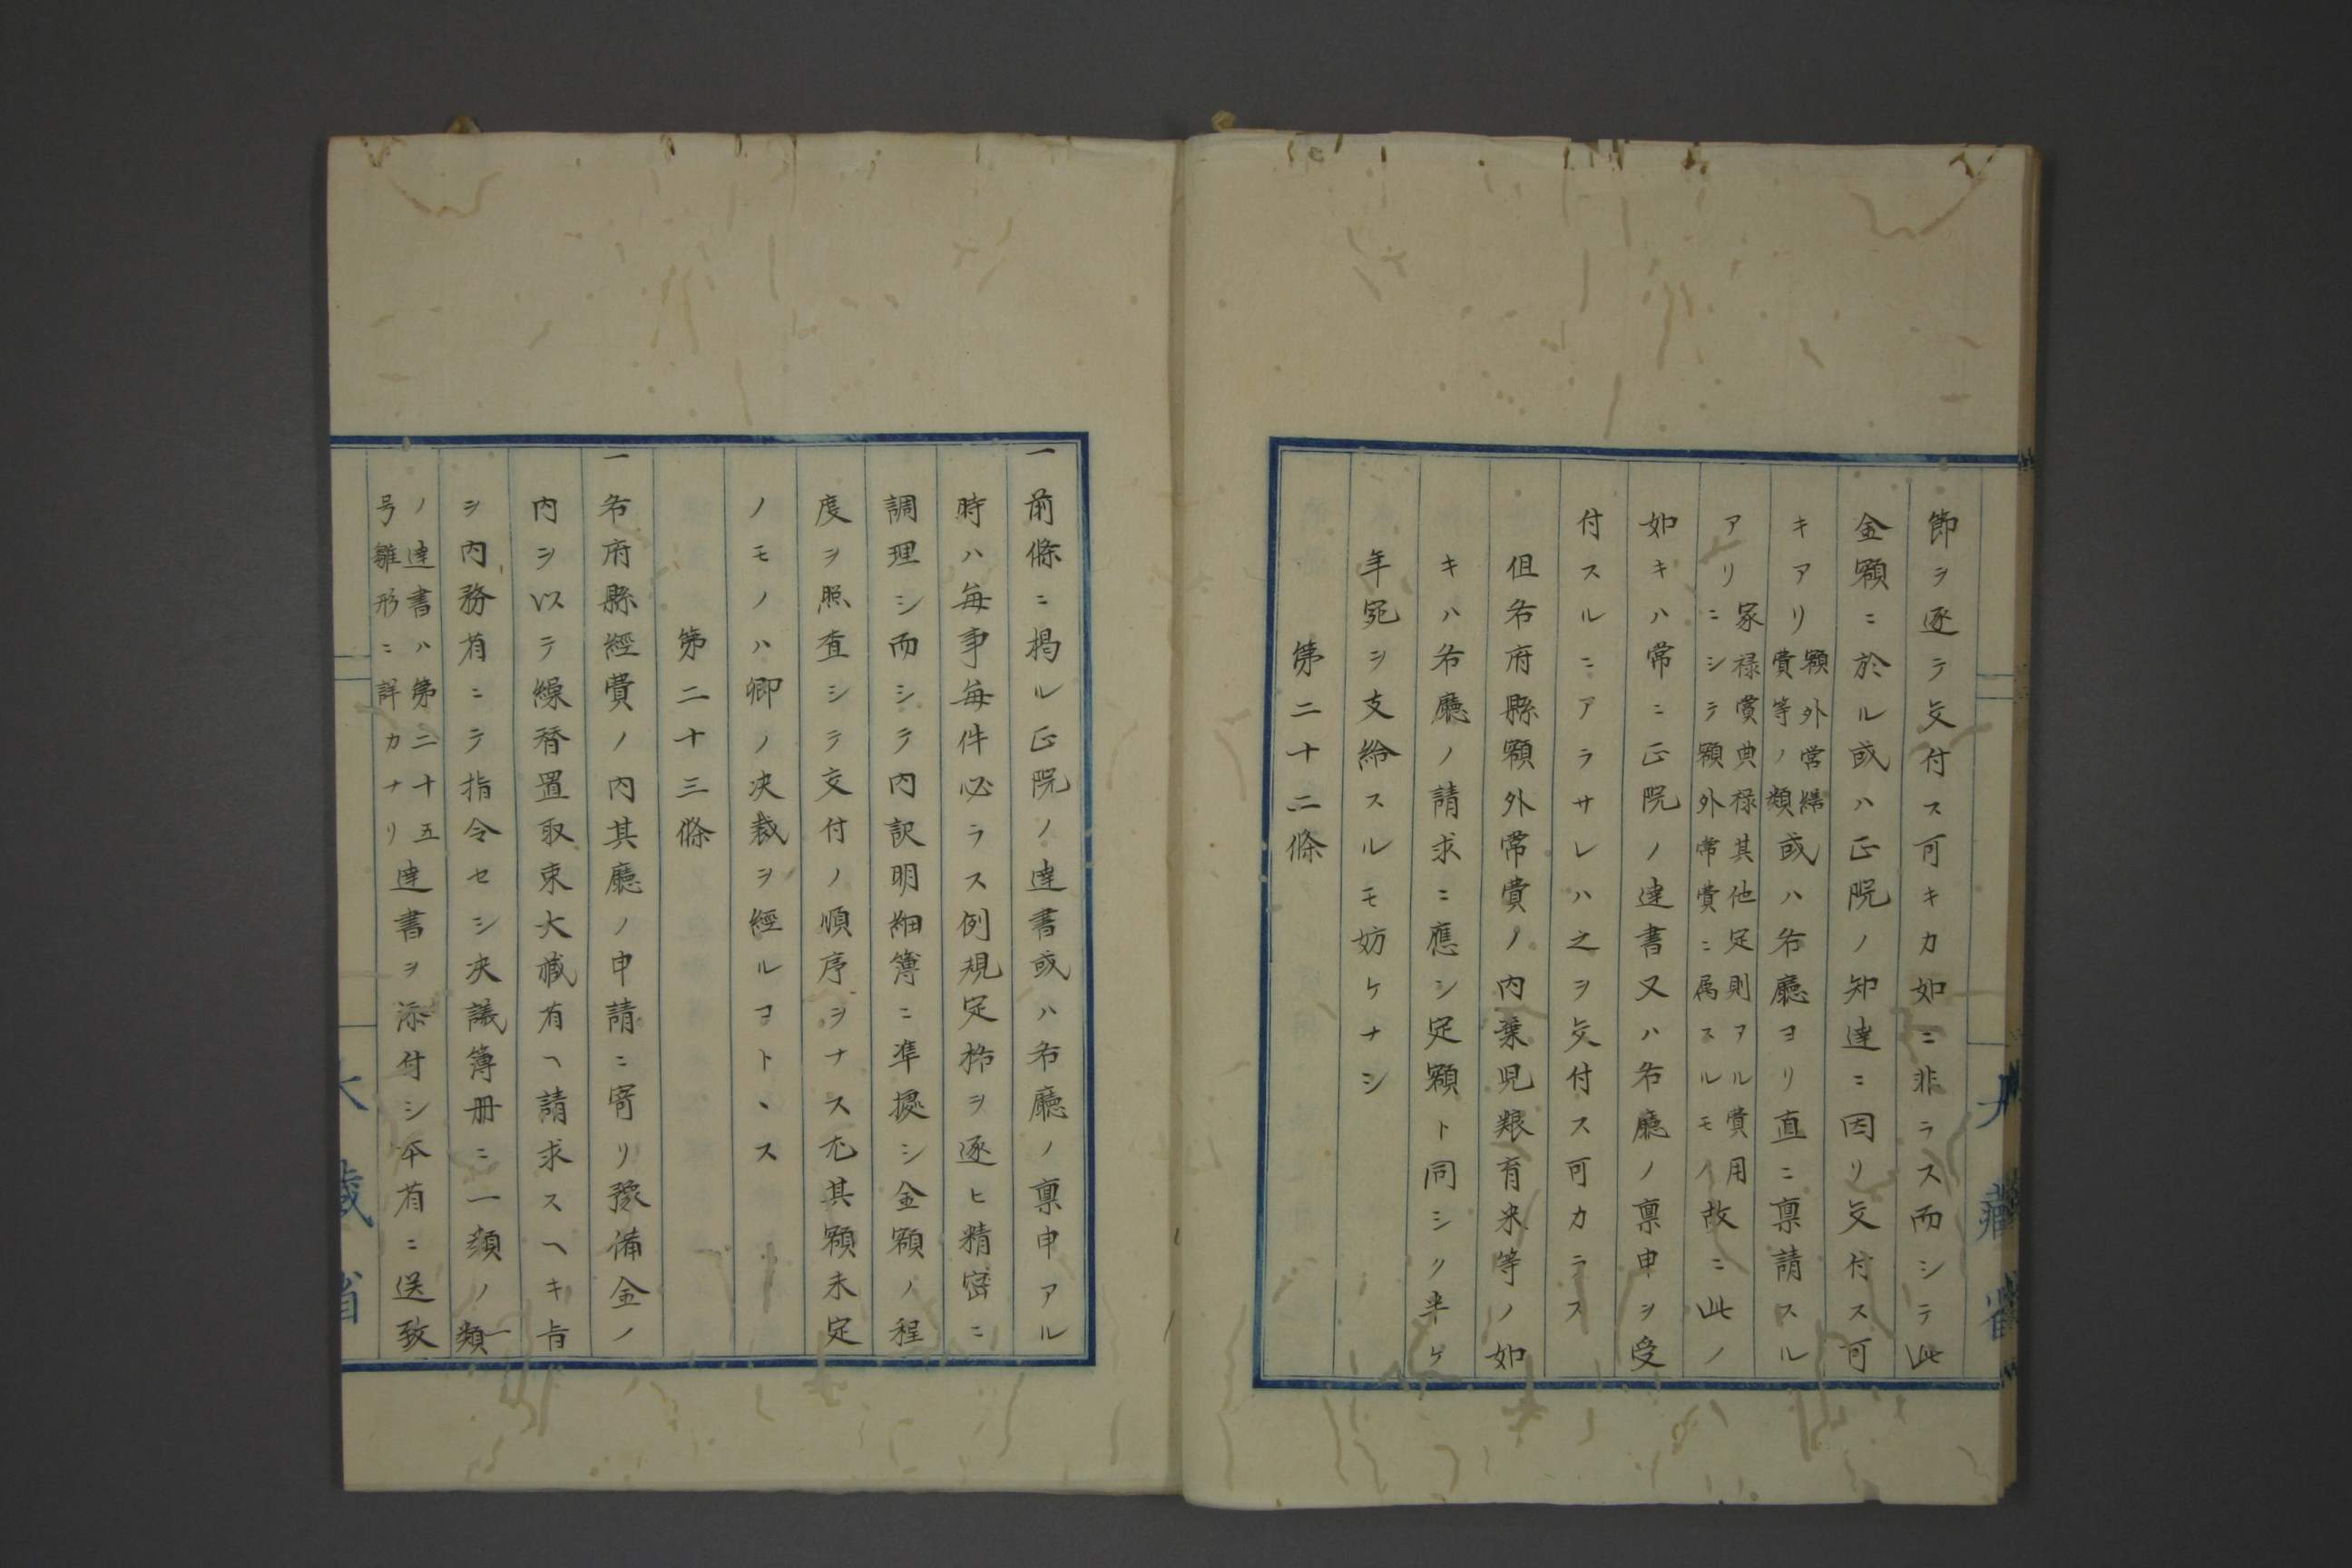 節ヲ逐テ交付ス可キカ如ニ非ラス而シテ此
金額ニ於ル或ハ正院ノ知達ニ因リ交付ス可
キアリ額外営繕費等ノ類或ハ各廳ヨリ直ニ禀請スル
アリ家禄賞典禄其他定則アル費用ニシテ額外常費ニ属スルモノ故ニ此ノ
如キハ常ニ正院ノ達書又ハ各廳ノ禀申ヲ受
付スルニアラサレハ之ヲ交付ス可カラス
但各府縣額外常費ノ内棄児粮育米等ノ如
キハ各廳ノ請求ニ應シ定額ト同シク半ケ
年宛ヲ支給スルモ妨ケナシ
第二十二條
一前條ニ掲ル正院ノ達書或ハ各廳ノ禀申アル
時ハ毎事毎件必ラス例規定格ヲ逐ヒ精密ニ
調理シ而シテ内訳明細簿ニ準據シ金額ノ程
度ヲ照査シテ交付ノ順序ヲナス尤其額未定
ノモノハ卿ノ决裁ヲ經ルコトヽス
第二十三條
一各府縣經費ノ内其廳ノ申請ニ寄リ豫備金ノ
内ヲ以テ繰替置取束大蔵省ヘ請求スヘキ旨
ヲ内務省ニテ指令セシ决議簿册ニ一類ノ一類
ノ達書ハ第二十五号雛形ニ詳カナリ達書ヲ添付シ本省ニ送致
大藏省
大藏省